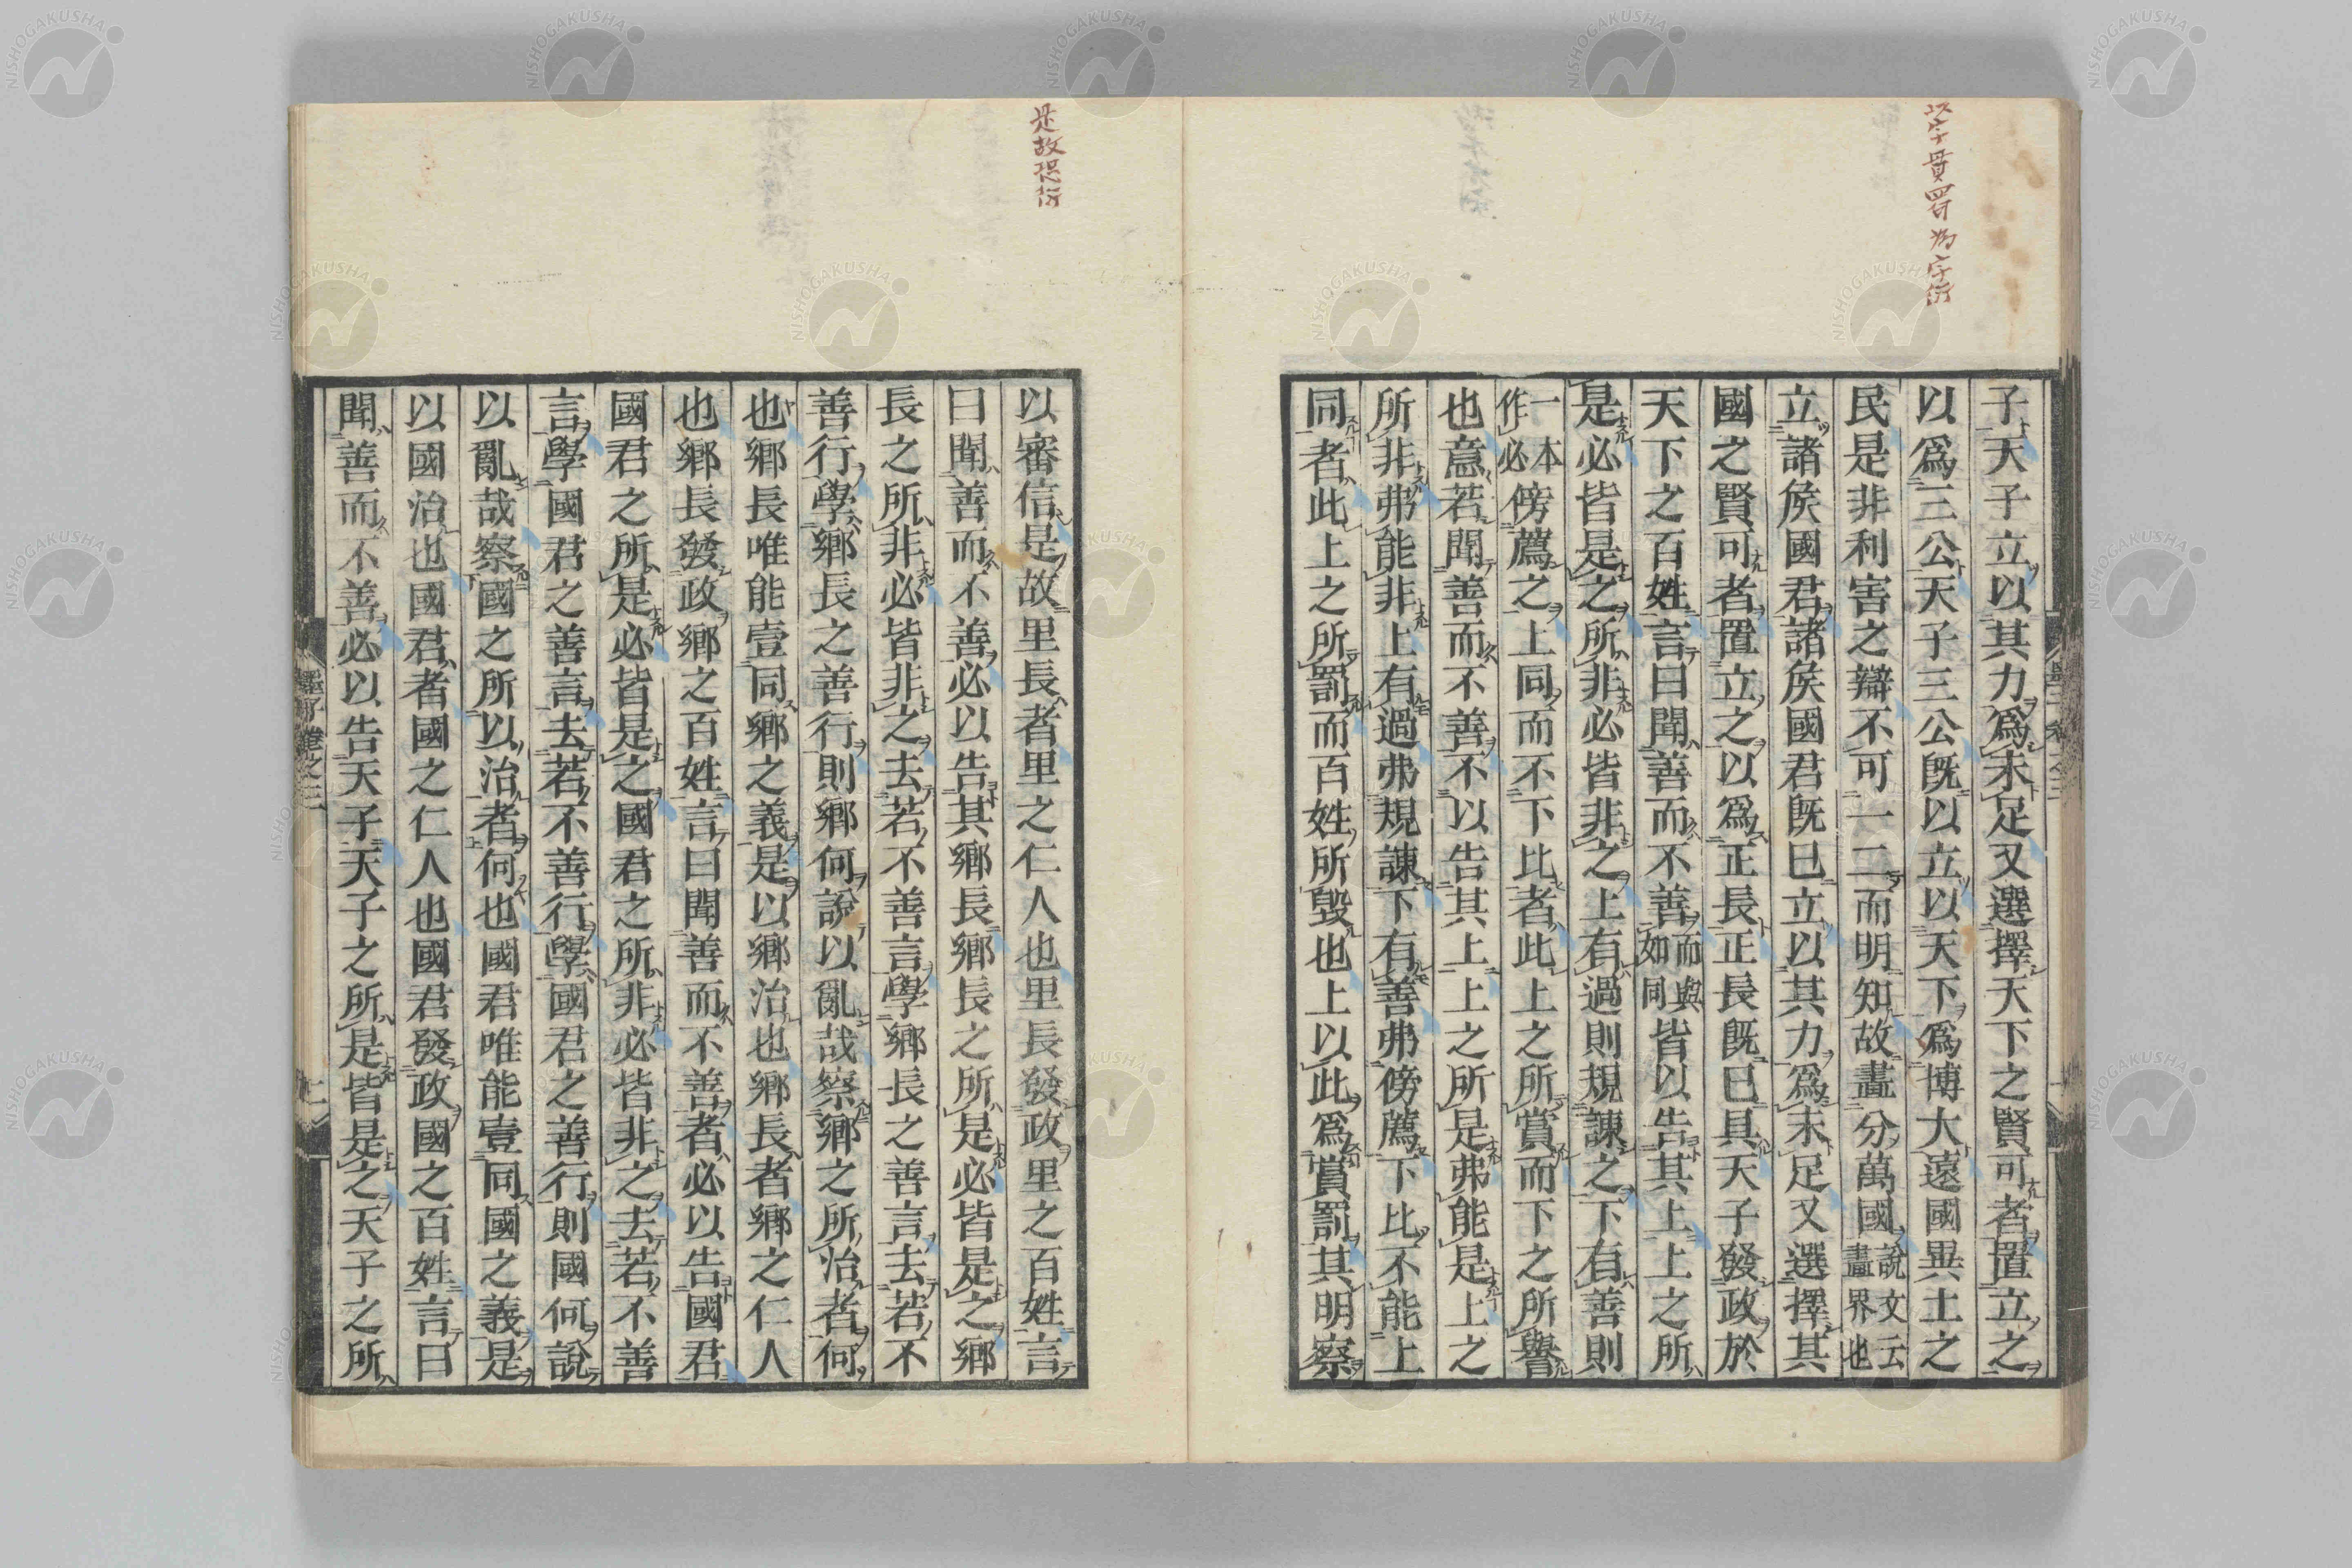 子天子立以其力爲未足又選擇天下之賢可者置立之
以爲三公天子三公旣以立以天下爲博大遠國異土之
民是非利害之辯不可一二而明知故畫分萬國說文云畫界也
立諸侯國君諸侯國君旣已立以其力爲未足又選擇其
國之賢可者置立之以爲正長正長旣已具天子發政於
天下之百姓言曰聞善而不善而與如同皆以告其上上之所
是必皆是之所非必皆非之上有過則規諫之下有善則
一本作必傍薦之上同而不下比者此上之所賞而下之所譽
也意若聞善而不善不以告其上上之所是弗能是上之
所非弗能非上有過弗規諫下有善弗傍薦下比不能上
同者此上之所罰而百姓所毀也上以此爲賞罰其明察
以審信是故里長者里之仁人也里長發政里之百姓言
曰聞善而不善必以告其鄉長鄉長之所是必皆是之鄉
長之所非必皆非之去若不善言學鄉長之善言去若不
善行學鄉長之善行則鄉何說以亂哉察鄉之所治者何
也鄉長唯能壹同鄉之義是以鄉治也鄉長者鄉之仁人
也鄉長發政鄉之百姓言曰聞善而不善者必以告國君
國君之所是必皆是之國君之所非必皆非之去若不善
言學國君之善言去若不善行學國君之善行則國何說
以亂哉察國之所以治者何也國君唯能壹同國之義是
以國治也國君者國之仁人也國君發政國之百姓言曰
聞善而不善必以告天子天子之所是皆是之天子之所
墨子卷之三
是故恐衍
NISHOGAKUSHA